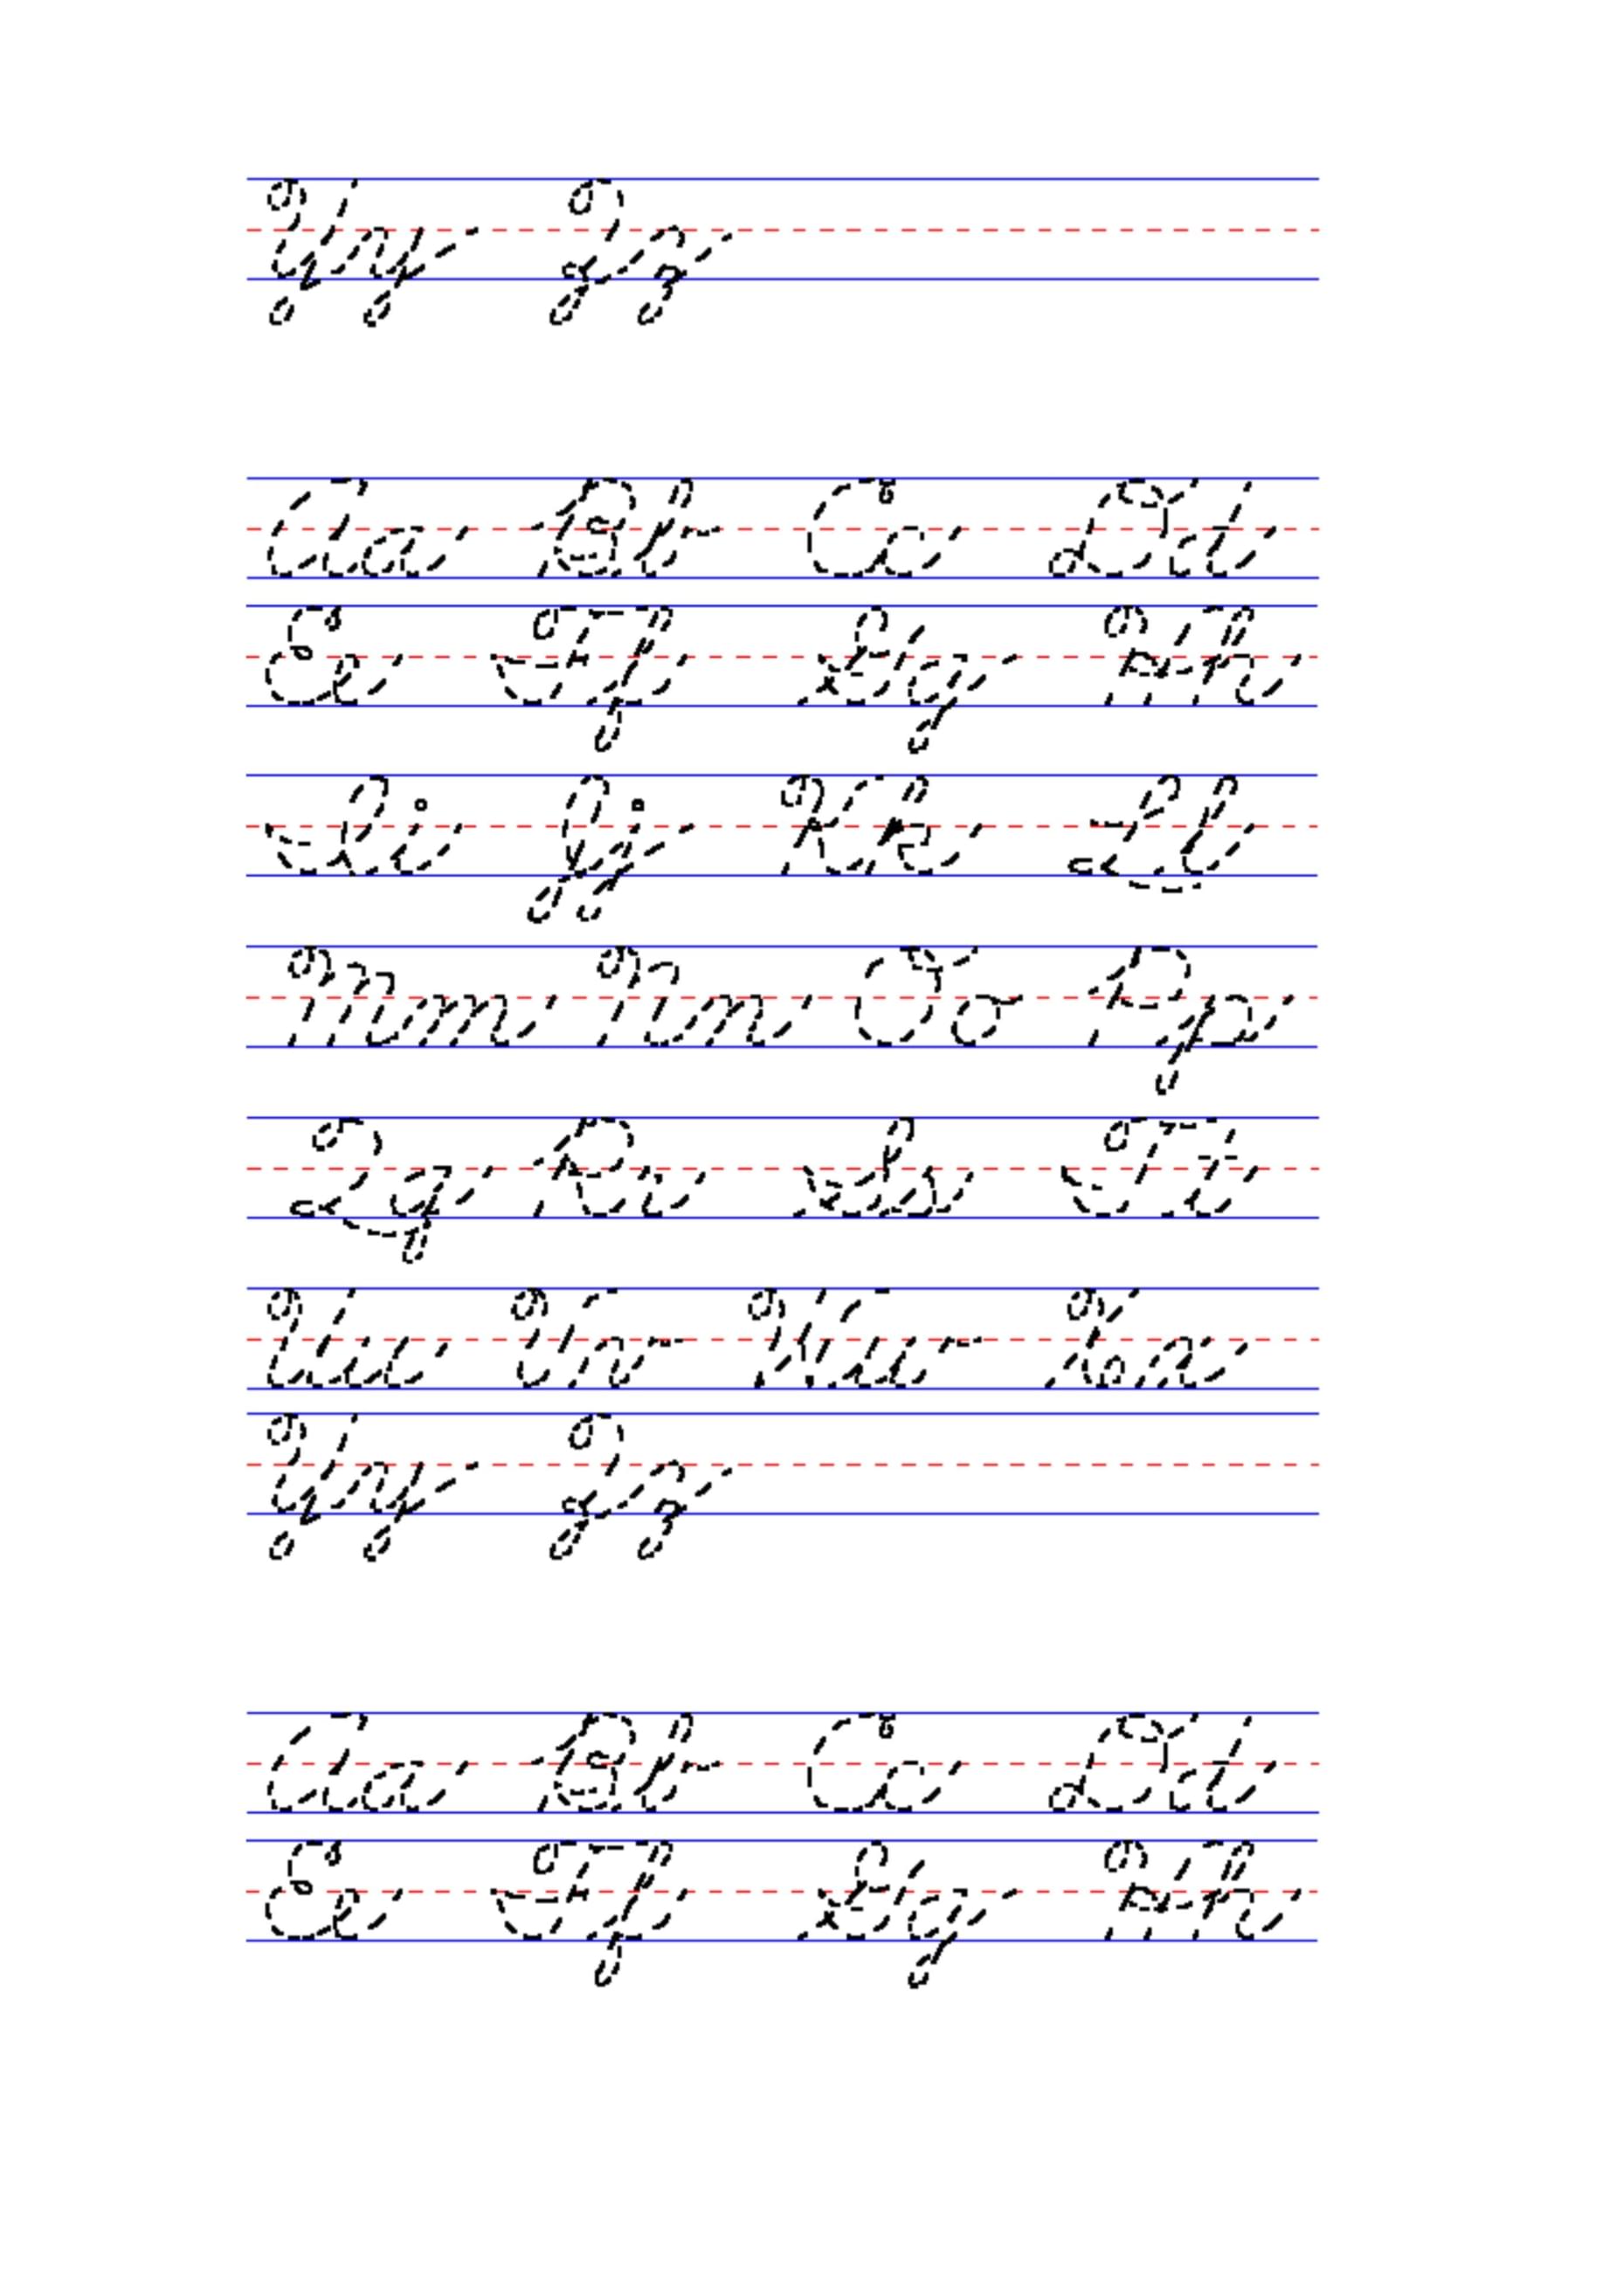 Yy Zz
Aa Bb Cc Dd
Ee Ff Gg Hh
Ii Jj Kk Ll
Mm Nn Oo Pp
Qq Rr Ss Tt
Uu Vv Ww Xx
Yy Zz
Aa Bb Cc Dd
Ee Ff Gg Hh